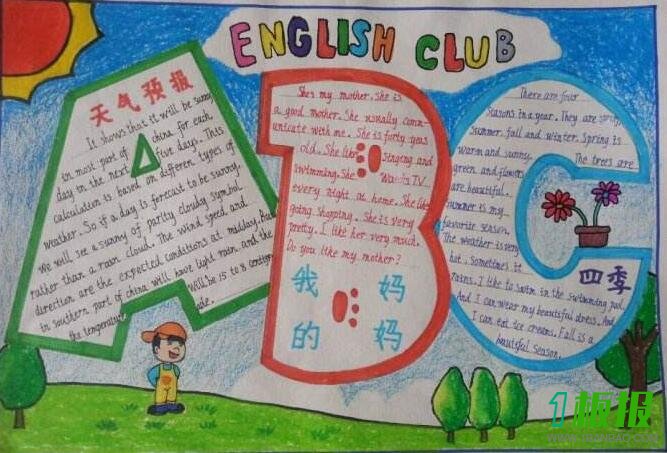 ENGLISH CLUB
天气预报
It shows that it will be sunny
in most part of china for each
day in the next five days. This
calculation is based on different types of
weather. So if a day is forecast to be sunny.
We will see a sunny of partly cloudy symbol
rather than a rain cloud. The wind speed and
direction are the expected conditions at midday. And
in southern part of china will have light rain and the
the temperature will be 15 to 8 centigr
ade.
She's my mother. She is
a good mother. She usually comm-
unicate with me. She is forty years
old. She likes singing and
swimming. She Watch TV
every night at home. She likes
going shopping. She is very
pretty. I like her very much.
Do you like my mother?
我 妈
的 妈
There are four
seasons in a year. They are spring.
Summer. fall and winter. Spring is
warm and sunny. The trees are
green and flowers
are beautiful.
summer is my
favorite season.
The weather is very
hot. Sometimes it
rains. I like to swim in the swimming pool.
And I can wear my beautiful dress. And
I can eat ice creams. Fall is a
beautiful season.
四季
板报